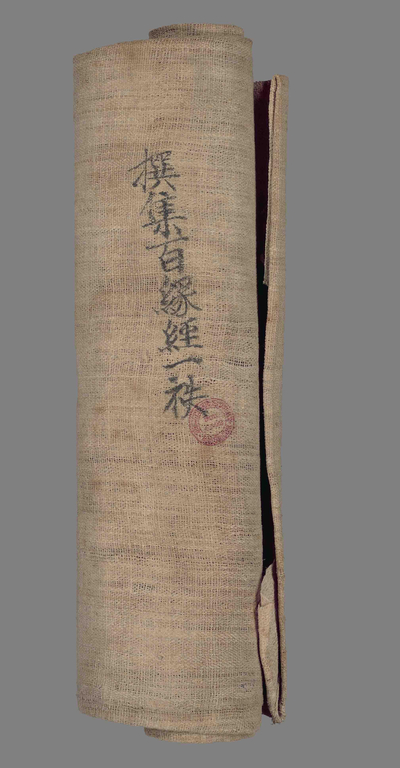 撰集百緣經一袟